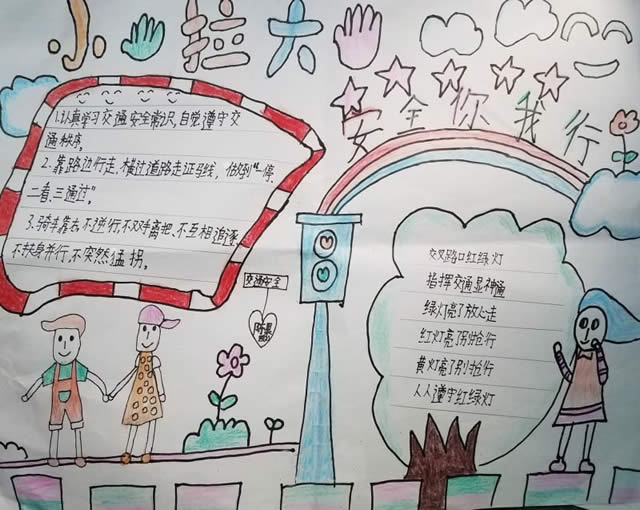 小手拉大手
安全你我行
1.认真学习交通安全常识,自觉遵守交
通秩序。
2.靠路边行走,横过道路走斑马线,做到"一停、
二看、三通过"。
3.骑车靠右,不逆行,不双手离把、不互相追逐、
不扶身并行,不突然猛拐。
交通安全
交叉路口红绿灯
指挥交通显神通
绿灯亮了放心走
红灯亮了别抢行
黄灯亮了别抢行
人人遵守红绿灯